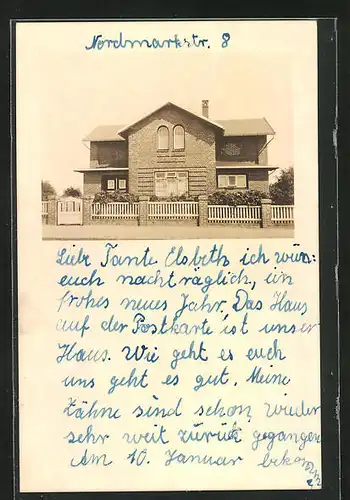 Nordmarkstr. 8
Liebe Tante Elsbeth ich wün=
euch nachträglich, ein
frohes neues Jahr. Das Haus
auf der Postkarte ist unser
Haus. Wie geht es euch
uns geht es gut. Meine
Zähne sind schon wieder
sehr weit zurück gegangen
Am 10. Januar